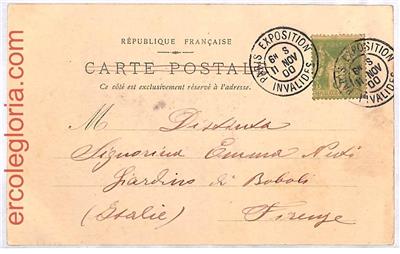 ercolegloria.com
RÉPUBLIQUE FRANÇAISE
CARTE POSTALE
Ce côté est exclusivement réservé à l'adresse.
PARIS EXPOSITION
6E S
11 NOV
00
INVALIDES
PARIS EXPOSITION
S
11 NOV
00
INVALIDES
M Distinta
Signorina Emma
Giardino di Boboli
(Italie) Firenze